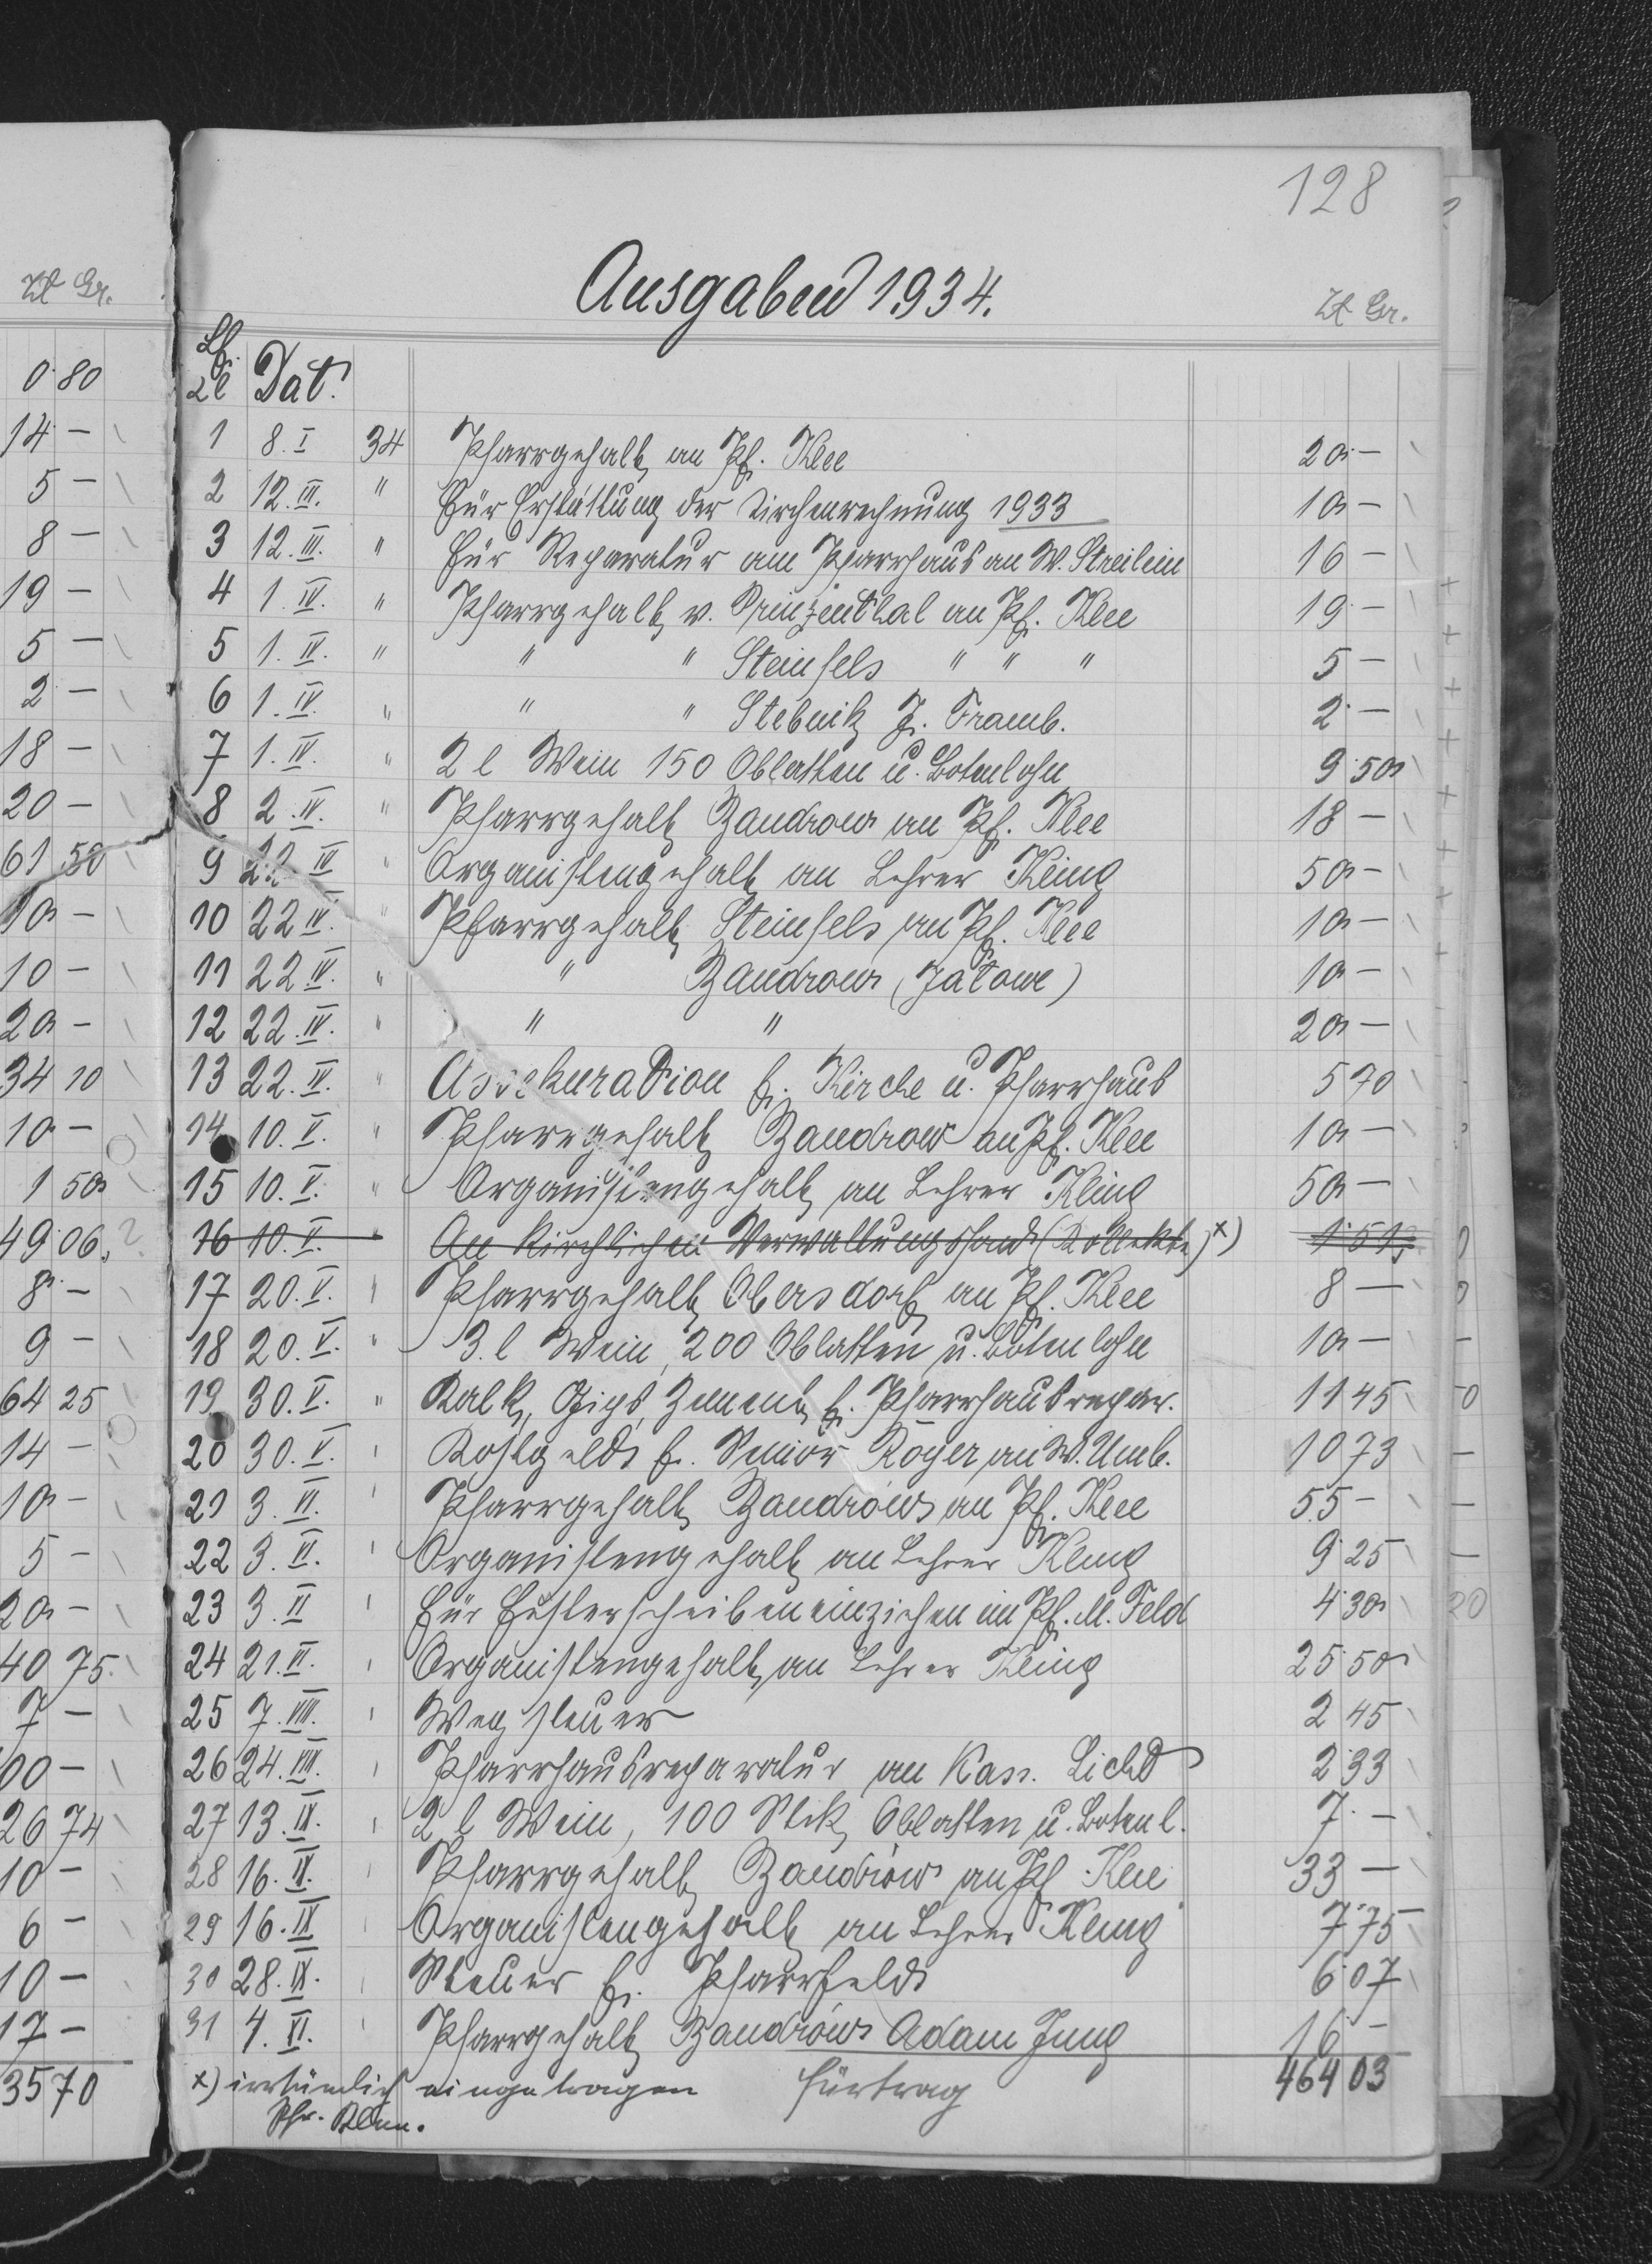 128
Zł Gr.
Ausgaben 1934.
Zł Gr.
Lf.
Zl Dat.
0 80
14 -
5 -
8 -
19 -
5 -
2 -
18 -
20 -
61 50
10 -
10 -
20 -
34 10
10 -
1 50
49 06 ?
8 -
9 -
64 25
14 -
10 -
5 -
20 -
40 75
7 -
00 -
26 74
10 -
6 -
10 -
17 -
35 70
1 8. I 34 Pfarrgehalt an Pf. Klee 20 -
2 12. III. " Für Erstattung der Kirchenrechnung 1933 10 -
3 12. III. " Für Reparatur am Pfarrhaus an W. Streilein 16 -
4 1. IV. " Pfarrgehalt v. Prinzenthal an Pf. Klee 19 -
5 1. IV. " " " Steinfels " " " 5 -
6 1. IV. " " " Stebnik J. Framb. 2 -
7 1. IV. " 2 l Wein 150 Oblatten u. Botenlohn 9 50
8 2. IV. " Pfarrgehalt Bandrow an Pf. Klee 18 -
9 22 IV " Organistengehalt an Lehrer Kling 50 -
10 22 IV. " Pfarrgehalt Steinfels an Pf. Klee 10 -
11 22 IV. " " Bandrow (Jałowe) 10 -
12 22. IV. " " " 20 -
13 22. IV. " Assekuration f. Kirche u. Pfarrhaus 5 70
14 10. V. " Pfarrgehalt Bandrow an Pf. Klee 10 -
15 10. V. " Organistengehalt an Lehrer Kling 50 -
16 10. V. " An Kirchlichen Verwaltungsfond (Kollekte) x) 1 51
17 20. V. " Pfarrgehalt Obersdorf an Pf. Klee 8 -
18 20. V. " 3. l Wein, 200 Oblatten u. Botenlohn 10 -
19 30. V. " Kalk, Gips, Zement f. Pfarrhausrepar. 11 45
20 30. V. " Kostgeld f. Senior Royer an W. Umb. 10 73
21 3. VI. " Pfarrgehalt Bandrów an Pf. Klee 55 -
22 3. VI. " Organistengehalt an Lehrer Kling 9 25
23 3. VI " Für Fensterscheiben einziehen im Pf. M. Feld 4 30
24 21. VI. " Organistengehalt an Lehrer Kling 25 50
25 7. VIII. " Wegsteuer 2 45
26 24. VIII. " Pfarrhausreparatur an Kas. Licht 2 33
27 13. IX. " 2 l Wein, 100 Stck Oblatten u. Botenl. 7. -
28 16. IX. " Pfarrgehalt Bandrów an Pf. Klee 33 -
29 16. IX " Organistengehalt an Lehrer Kling 7 75
30 28. IX. " Steuer f. Pfarrfeld 6 07
31 4. XI. " Pfarrgehalt Bandrów Adam Jung 16 -
x) irrtümlich eingetragen Fürtrag 464 03
Pfr.
20